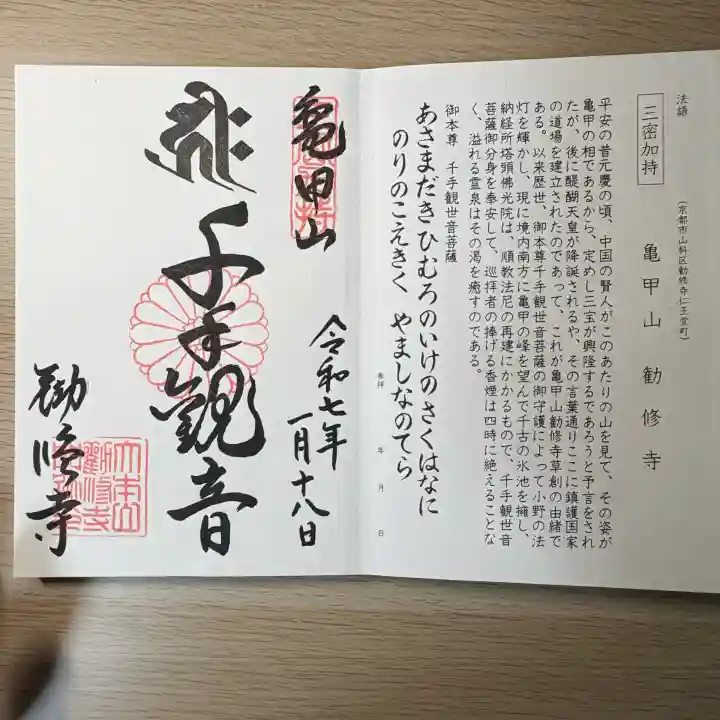 法語
三密加持
(京都市山科区勧修寺仁王堂町)
亀甲山 勧修寺
平安の昔元慶の頃、中国の賢人がこのあたりの山を見て、その姿が
亀甲の相であるから、定めし三宝が興隆するであろうと予言をされ
たが、後に醍醐天皇が降誕されるや、その言葉通りここに鎮護国家
の道場を建立されたのであって、これが亀甲山勧修寺草創の由緒で
ある。以来歴世、御本尊千手観世音菩薩の御守護によって小野の法
灯を輝かし、現に境内南方に亀甲の峰を望んで千古の氷池を擁し、
納経所塔頭佛光院は、順教法尼の再建にかかるもので、千手観世音
菩薩御分身を奉安して、巡拝者の捧げる香煙は四時に絶えることな
く、溢れる霊泉はその渇を癒すのである。
御本尊 千手観世音菩薩
あさまだきひむろのいけのさくはなに
のりのこえきく やましなのてら
参拝 年 月 日
亀甲山
令和七年
一月十八日
千手観音
勧修寺